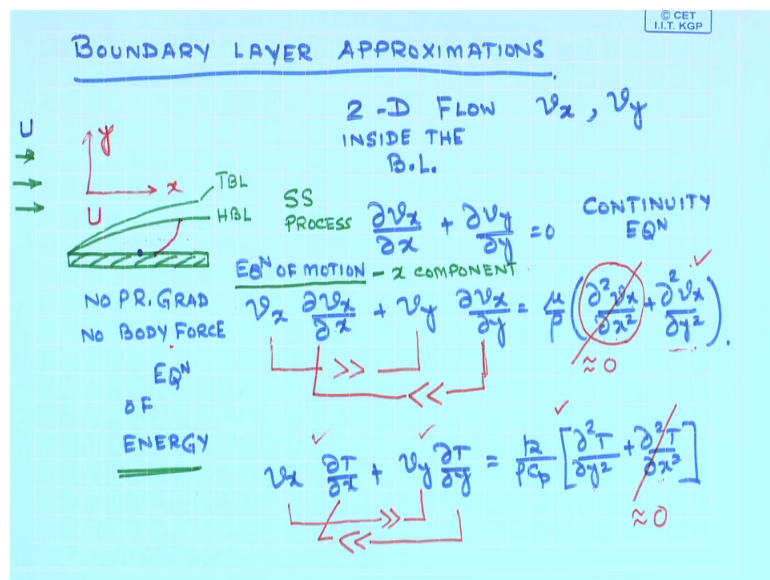 © CET
I.I.T. KGP
BOUNDARY LAYER APPROXIMATIONS
2-D FLOW vx, vy
INSIDE THE
B.L.
U
y
x
U
TBL
HBL
SS
PROCESS ∂vx/∂x + ∂vy/∂y = 0
CONTINUITY
EQN
EQN OF MOTION - x COMPONENT
NO PR. GRAD
NO BODY FORCE
vx ∂vx/∂x + vy ∂vx/∂y = μ/ρ (∂²vx/∂x² + ∂²vx/∂y²).
>>
<<
≈ 0
EQN
OF
ENERGY
vx ∂T/∂x + vy ∂T/∂y = k/ρCp [∂²T/∂y² + ∂²T/∂x²]
>>
<<
≈ 0